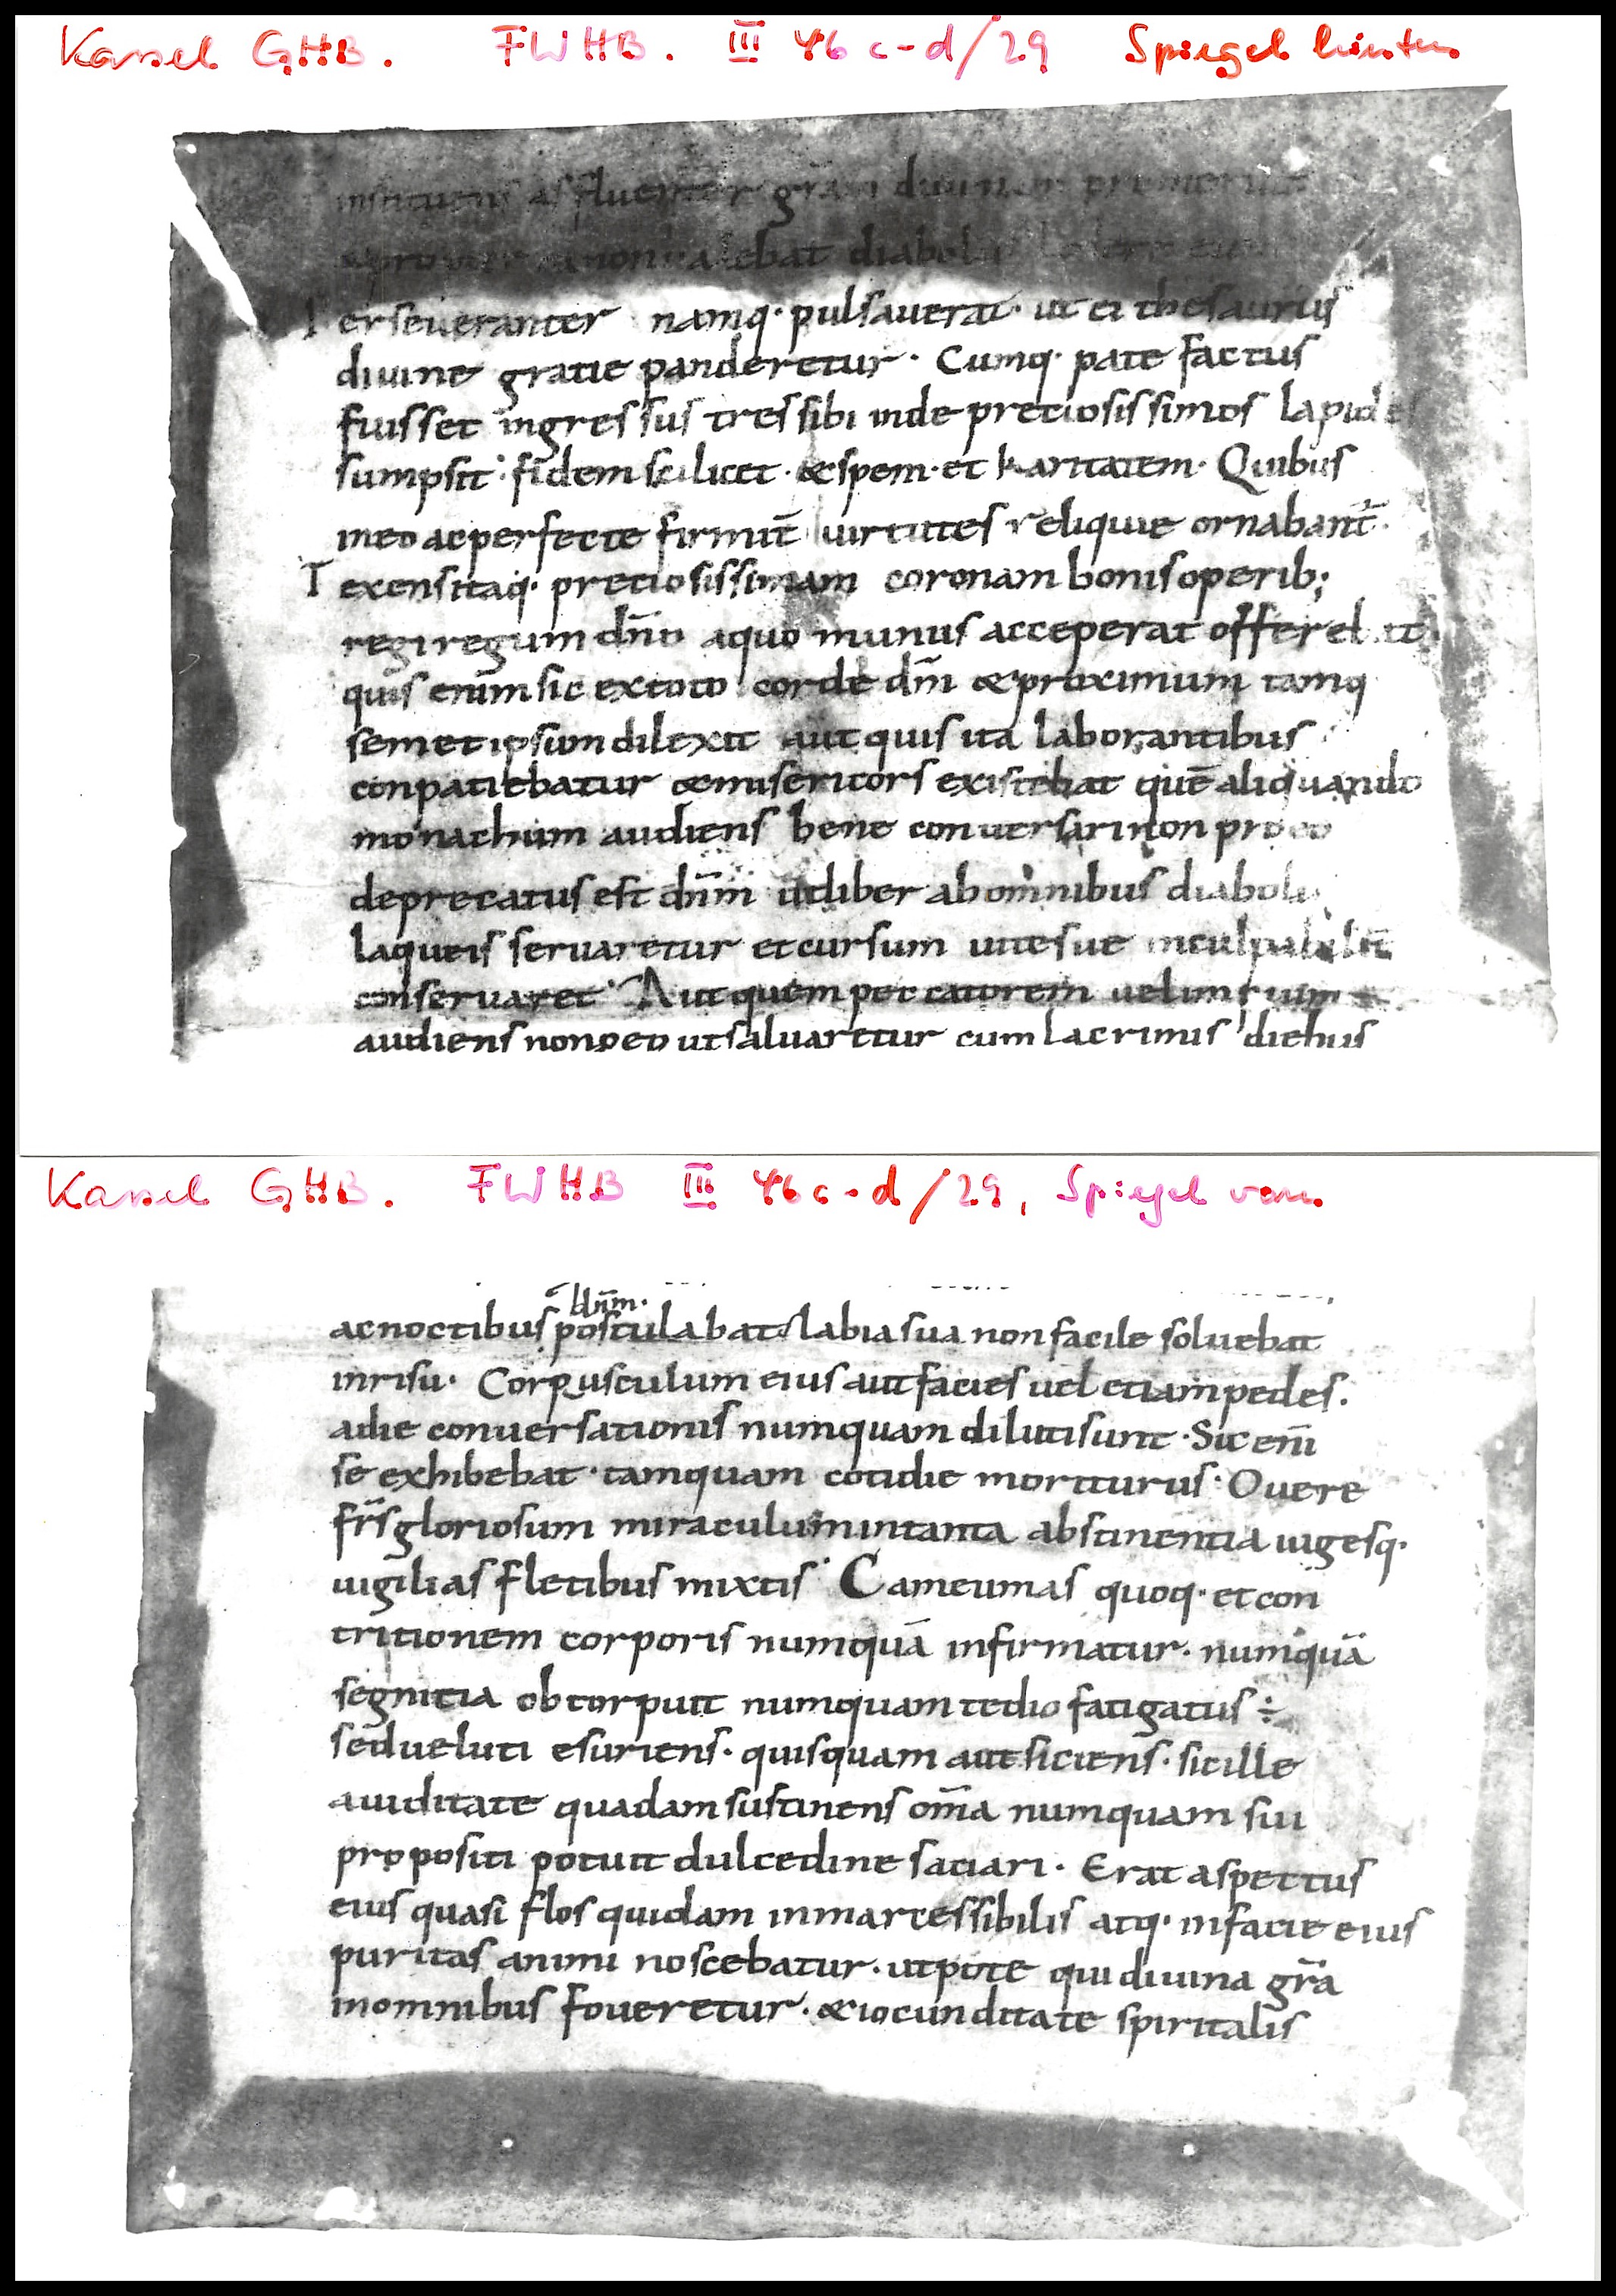 Kassel GHB. FWHB. III 46 c-d/29 Spiegel hinten
instituens affluenter grãm diuinam
non ualebat diabolus
Perseueranter namq· pulsauerat· ut ei thesaurus
diuine gratie panderetur· Cumq· pate factus
fuisset ingressus tres sibi inde preciosissimos lapides
sumpsit· fidem scilicet· & spem· et karitatem· Quibus
in eo ac perfecte firmit̄ uirtutes reliquie ornabant̄·
Texens itaq· preciosissimam coronam bonis operib;
regi regum dño a quo munus acceperat offerebat
quis enim sic ex toto corde dm̄ & proximum tamq
semet ipsum dilexit aut quis ita laborantibus
conpatiebatur & misericors existebat quē aliquando
monachum audiens bene conuersari non pro eo
deprecatus est dn̄m ut liber ab omnibus diaboli
laqueis seruaretur et cursum uite sue inculpabilit̄
conseruaret· Aut quem peccatorem uel
audiens non eo ut saluaretur cum lacrimis diebus
Kassel GHB. FWHB III 46 c-d/29, Spiegel vorn.
dn̄m·
ac noctibus postulabat labia sua non facile soluebat
in risu· Corpusculum eius aut facies uel etiam pedes.
a die conuersationis numquam diluti sunt· Sic enī
se exhibebat· tamquam cotidie moriturus· O uere
fr̄s gloriosum miraculum in tanta abstinentia iugesq·
uigilias fletibus mixtis· Cameumas quoq· et con
tritionem corporis numquā infirmatur· numquā
segnitia obtorpuit numquam tedio fatigatus ÷
sed ueluti esuriens· quisquam aut siciens· sic ille
auiditate quadam sustinens om̄a numquam sui
propositi potuit dulcedine saciari· Erat aspectus
eius quasi flos quidam inmarcessibilis atq· in facie eius
puritas animi noscebatur· utpote qui diuina gr̄a
in omnibus foueretur· & iocunditate spiritalis